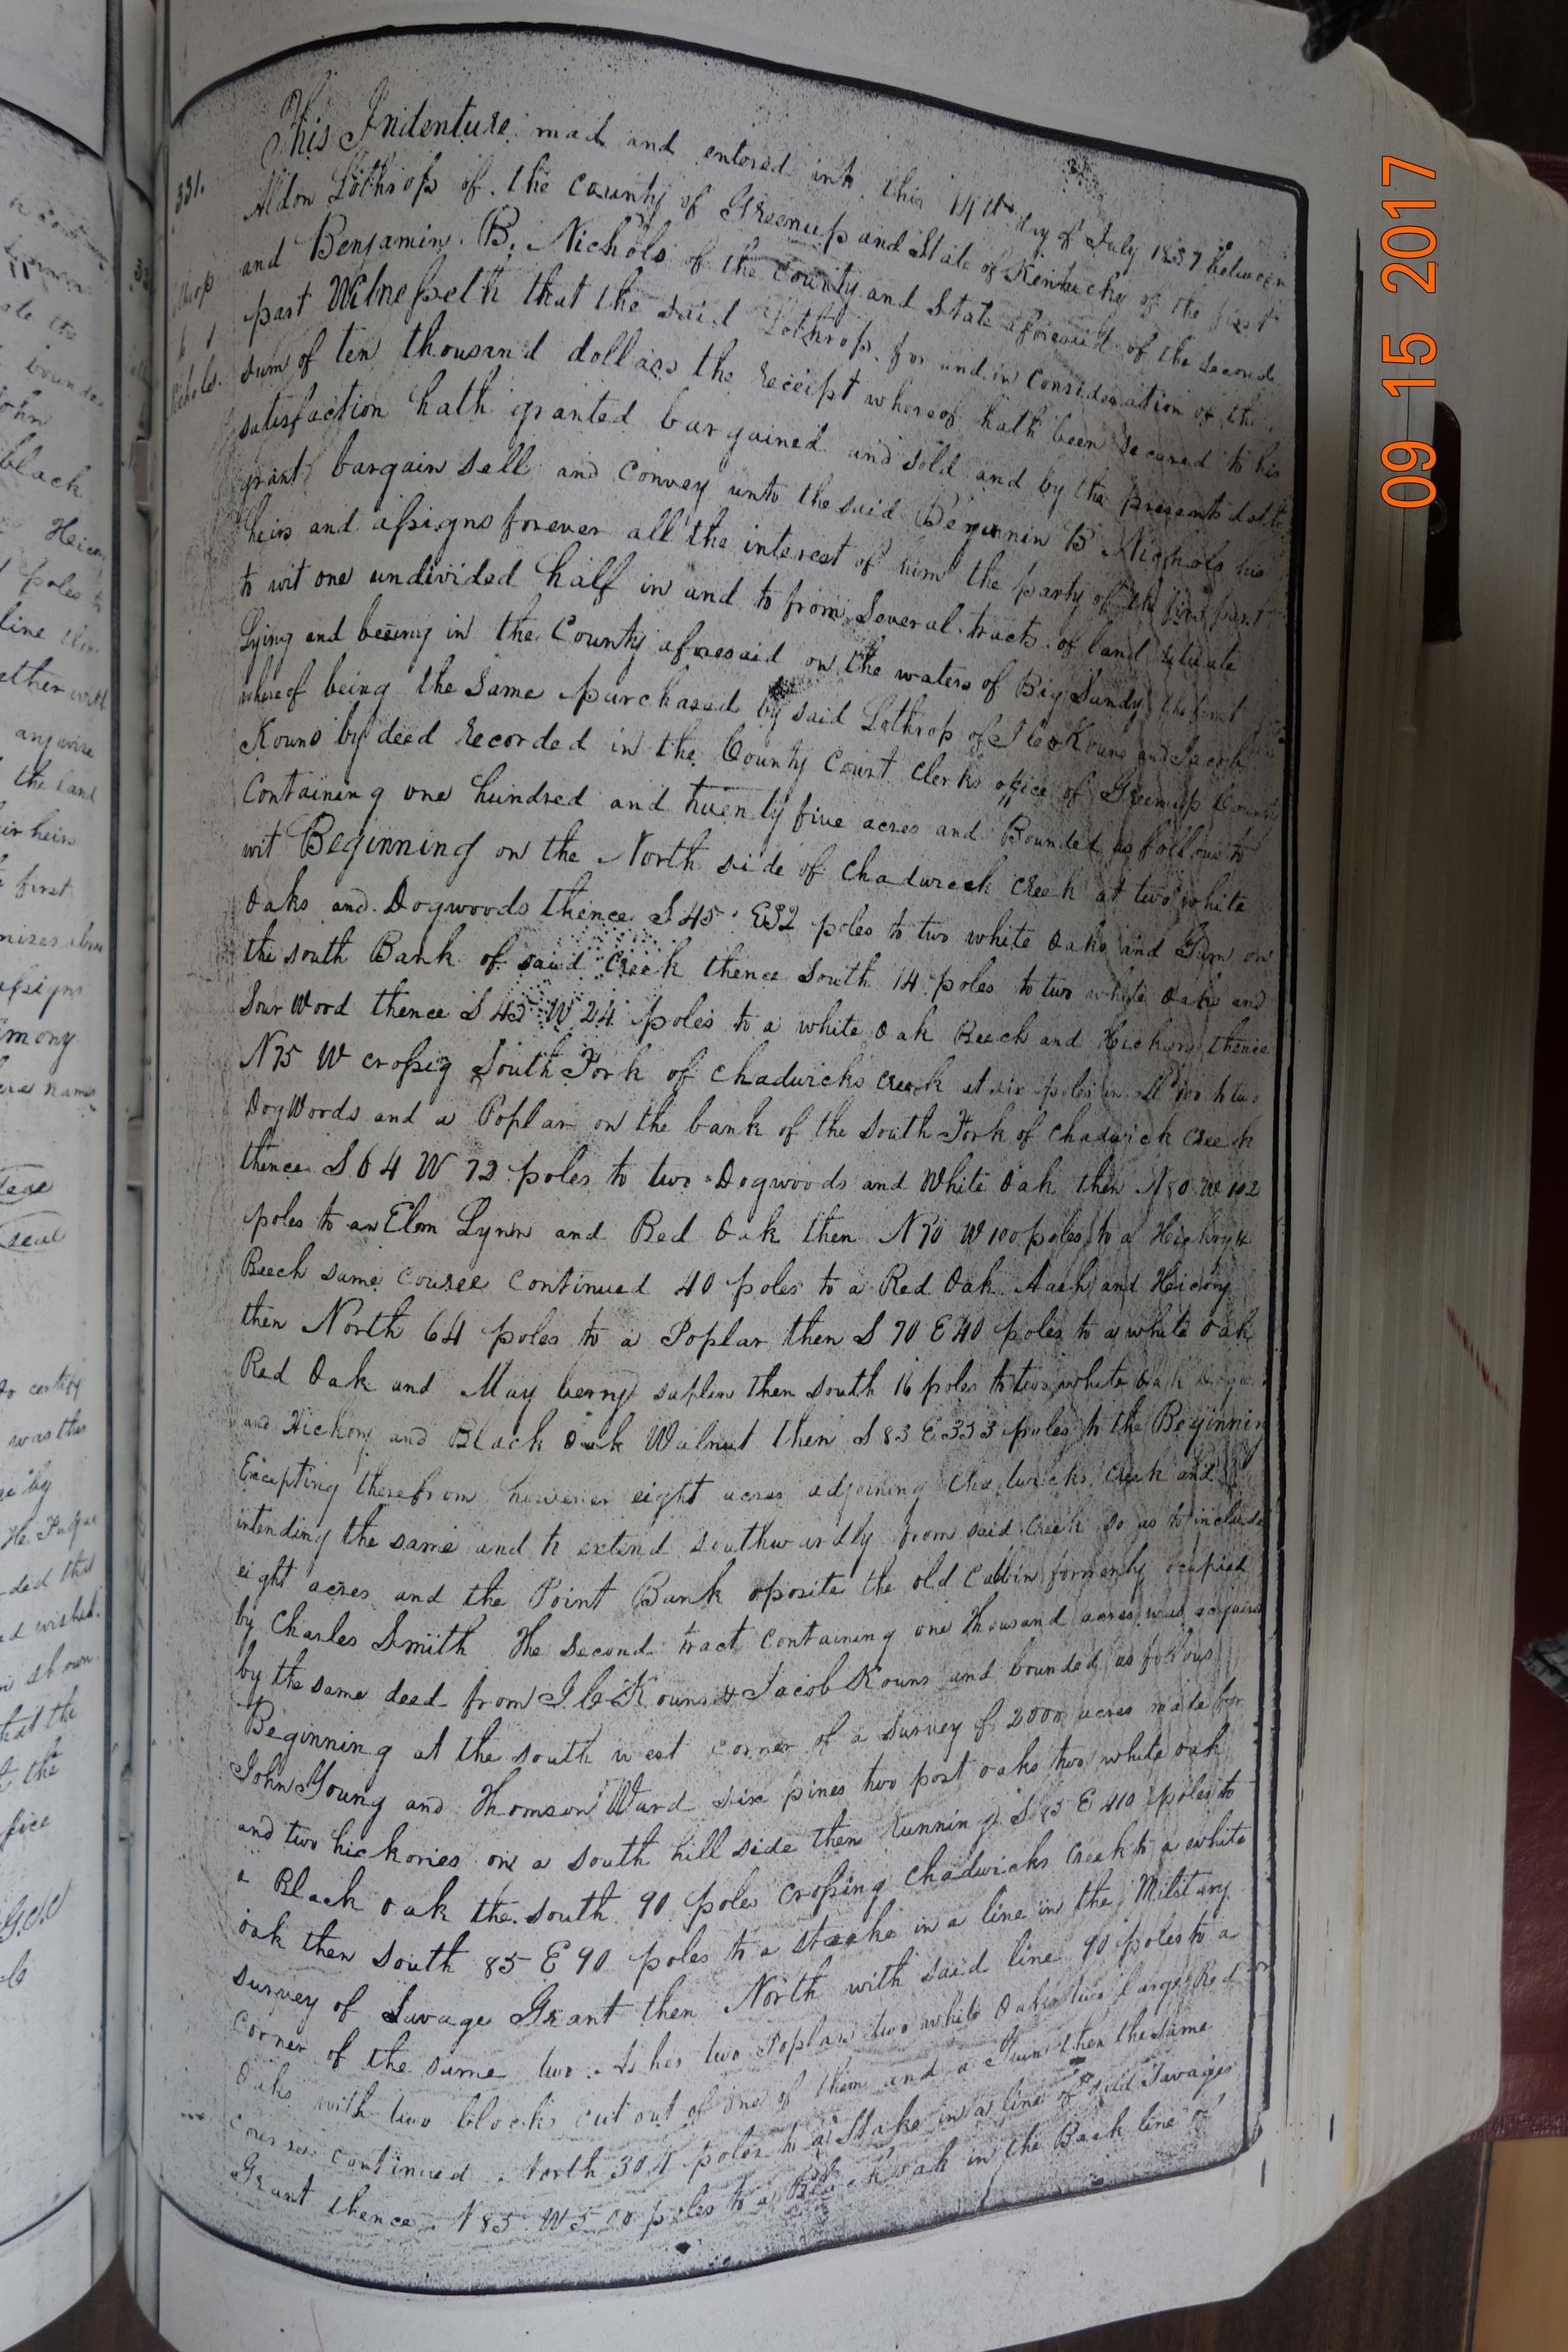 This Indenture mad and entered into this 14th day of July 1837 between
Aldon Lothrop of the County of Greenup and State of Kentucky of the first
and Benjamin B. Nichols of the County and State aforesaid of the second
part Witnesseth that the said Lothrop for and in Consideration of the
sum of ten thousand dollars the receipt whereof hath been secured to his
satisfaction hath granted bargained and sold and by the presents doth
grant bargain sell and Convey unto the said Benjamin B Nichols his
heirs and assigns forever all the interest of him the party of the first part
to wit one undivided half in and to from Several tracts of land situate
Lying and beeing in the County aforesaid on the waters of Big Sandy the first
whereof being the same purchased by said Lothrop of Kouns and Jacob
Kouns by deed recorded in the County Court Clerks office of Greenup County
Containing one hundred and twenty five acres and Bounded as follows to
wit Beginning on the North side of Chadwick Creek at two white
Oaks and Dogwoods thence S 45 E32 poles to two white Oaks and Gum on
the south Bank of said Creek thence South 14 poles to two white Oaks and
Sour Wood thence S 45 W 24 poles to a white Oak Beech and Hickory thence
N75 W crossig South Fork of Chadwicks Creek at six poles in all 100 to two
Dog Words and a Poplar on the bank of the South Fork of Chadwick Creek
thence S 64 W 72 poles to two Dogwoods and White Oak then N80 W 102
poles to an Elm Lynn and Red Oak then N70 W 100 poles to a Hickory &
Beech same Course Continued 40 poles to a Red Oak Aash and Heicory
then North 64 poles to a Poplar then S 70 E 40 poles to a white oak
Red Oak and May berry saplin then South 16 poles to two white Oak
and Hickory and Black Oak Walnut then S 83 E 333 poles to the Beginning
Excepting therefrom however eight acres adjoining Chadwicks Creek and
intending the same and to extend southwardly from said Creek so as to include
eight acres and the Point Bank oposite the old Cabbin formerly ocupied
by Charles Smith The second tract Containing one thousand acres was acquired
by the same deed from J. C. Kouns & Jacob Kouns and bounded as follows
Beginning at the south west corner of a survey of 2000 acres made for
John Young and Thomson Ward six pines two post oaks two white oak
and two hickories on a south hill side then running S 85 E 410 poles to
a Black oak the south 90 poles crossing Chadwicks Creek to a white
oak then South 85 E 90 poles to a stake in a line in the Military
survey of Savage Grant then North with said line 90 poles to a
corner of the same two Ashes two Poplar two white Oaks two large Red
Oaks with two blocks cut out of one of them and a Gum then the same
course continued North 304 poles to a Stake in a line of said Savages
Grant thence N 85 W 500 poles to a Black oak in the Back line of
331.
09 15 2017